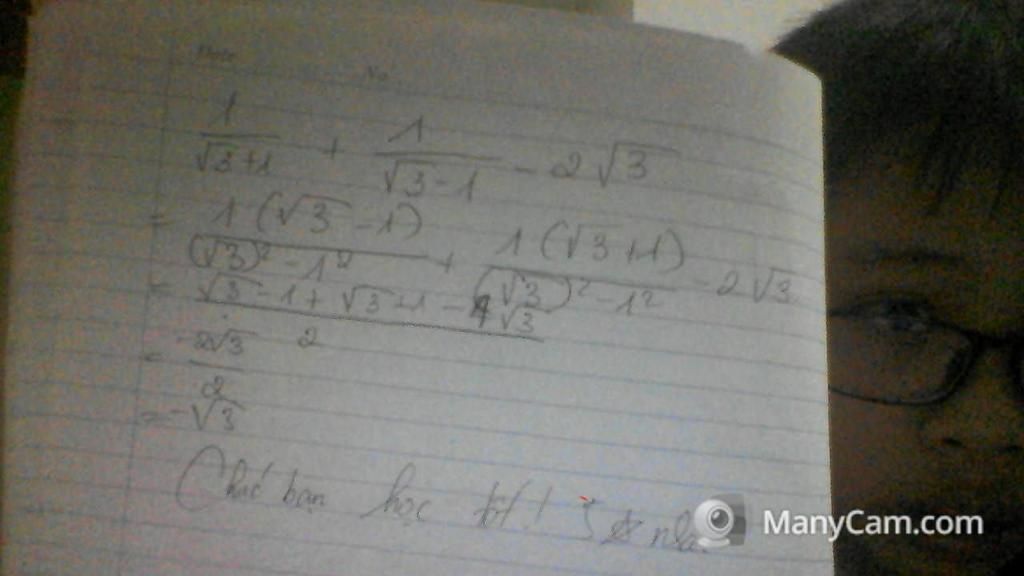 No.
1/(√3+1) + 1/(√3-1) - 2√3
= 1(√3-1)/((√3)²-1²) + 1(√3+1)/((√3)²-1²) - 2√3
= (√3-1+√3+1-4√3)/2
= -2√3/2
= -√3
Chúc bạn học tốt! 5 nha.
ManyCam.com